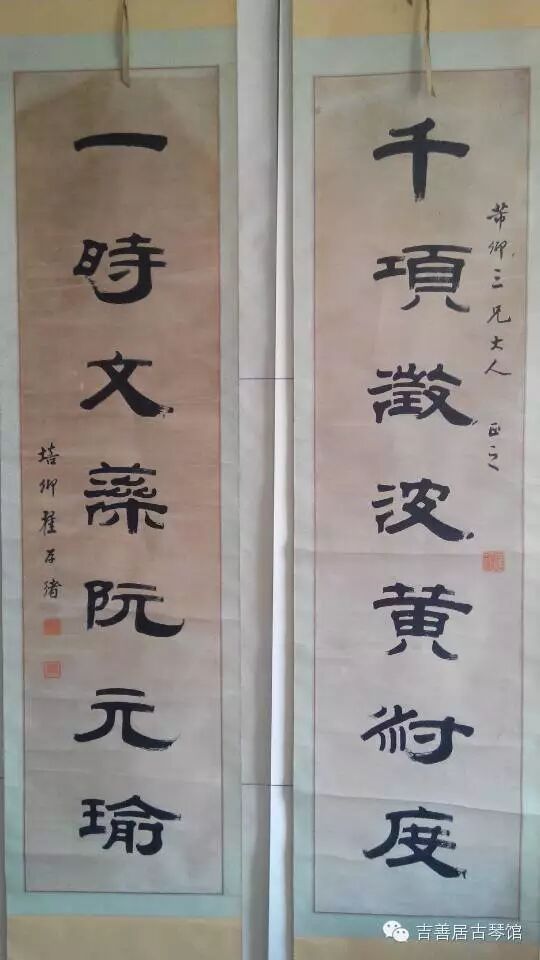 千項澂波黄叔度
芾卿三兄大人 正之
一時文藻阮元瑜
培卿
吉善居古琴馆